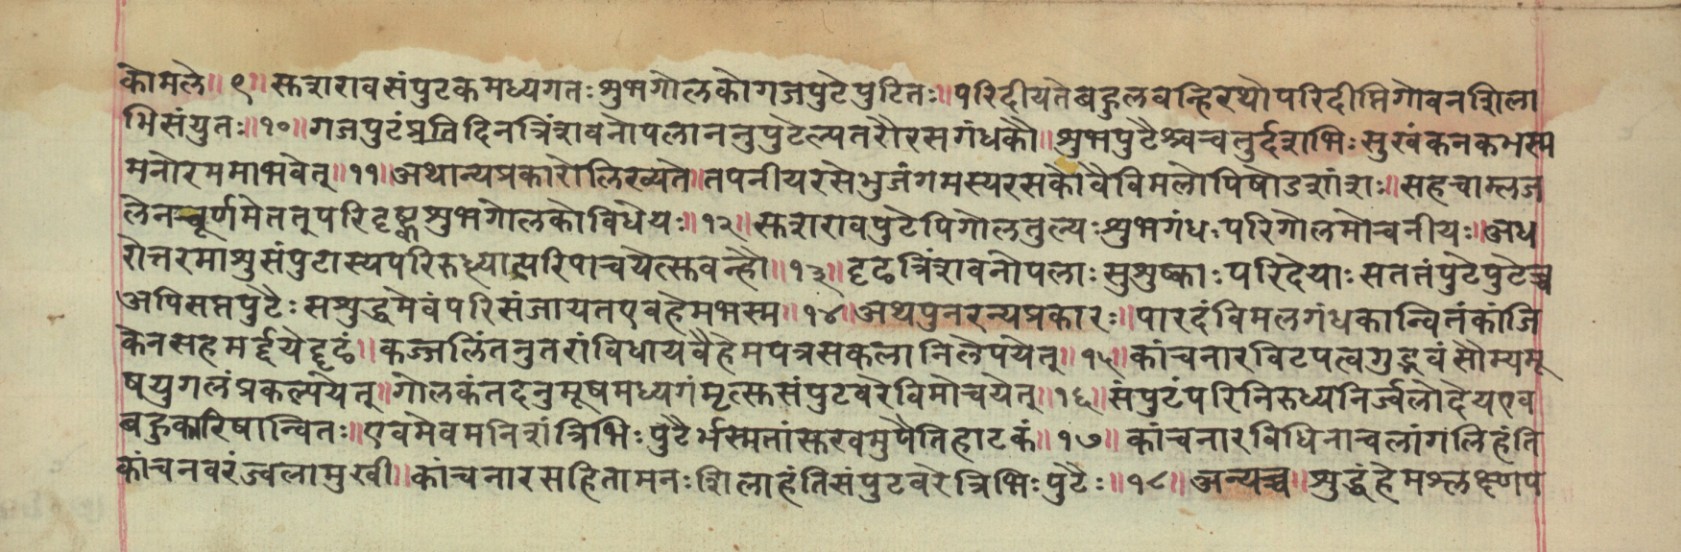 कोमले॥ ९॥ स्तशरावसंपुटकमध्यगतः शुभगोलको गजपुटे पुटितः॥ परिदीयते बहुलवन्हिरथोपरिदीप्तिगोवनशिला
भिसंयुतः॥ १०॥ गजपुटं प्रतिदिनत्रिंशवनोपलाननुपुटेल्पतरौ रसगंधकौ॥ शुभपुटैश्वचतुर्दशभिः सुखं कनकभस्म
मनोरममाभवेत्॥ ११॥ अथान्यप्रकारोलिख्यते॥ तपनीयरसेभुजंगमस्यरसकोवैविमलोपिषोडशांशः॥ सहचाम्लज
लेनचूर्णमेतत्परिदृष्ट्वाशुभगोलकोविधेयः॥ १२॥ स्तशरावपुटेपिगोलतुल्यः शुभगंध परिगोलमोचनीयः॥ अध
रोत्तरमाशुसंपुटास्यपरिरुध्यात्परिपाचयेत्स्तवन्हौ॥ १३॥ दृढत्रिंशवनोपलाः सुशुष्काः परिदेयाः सततंपुटेपुटेच्च
अपिसप्तपुटैः सशुद्धमेवंपरिसंजायतएवहेमभस्म॥ १४॥ अथपुनरन्यप्रकारः॥ पारदंविमलगंधकान्वितंकांजि
केनसहमर्द्दयेदृढं॥ कज्जलिंतनुतरांविधायवैहेमपत्रसकलानिलेपयेत्॥ १५॥ कांचनारविटपत्वगुद्भवंसौम्यमू
षयुगलंप्रकल्पयेत्॥ गोलकंतदनुमूषमध्यगंमृत्स्तसंपुटवरेविमोचयेत्॥ १६॥ संपुटंपरिनिरुध्यनिर्ज्वलोदेयएव
बहुकारिषान्वितः॥ एवमेवमनिशंत्रिभिः पुटैर्भस्मतांस्तखमुपैतिहाटकं॥ १७॥ कांचनारविधिनाचलांगलिहंति
कांचनवरंज्वलामुखी॥ कांचनारसहितामनःशिलाहंतिसंपुटवरेत्रिभिः पुटैः॥ १८॥ अन्यच्च॥ शुद्धंहेमश्लक्ष्णप